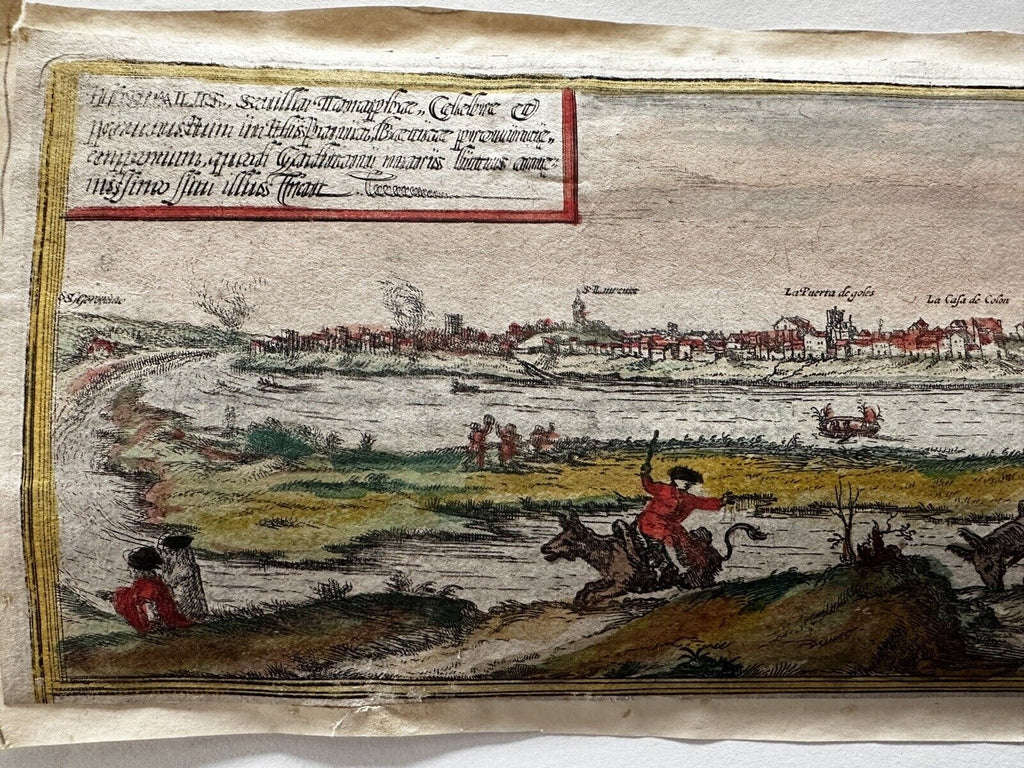 HISPALIS, Sevillia, Taraphæ, Celebre et
in Hispania, Bæticæ provinciæ,
emporium, quod Gaditani maris huius amæ-
nissimo sinu illustratur
S. Geronimo
S. Laurenzo
La Puerta de goles
La Casa de Colon